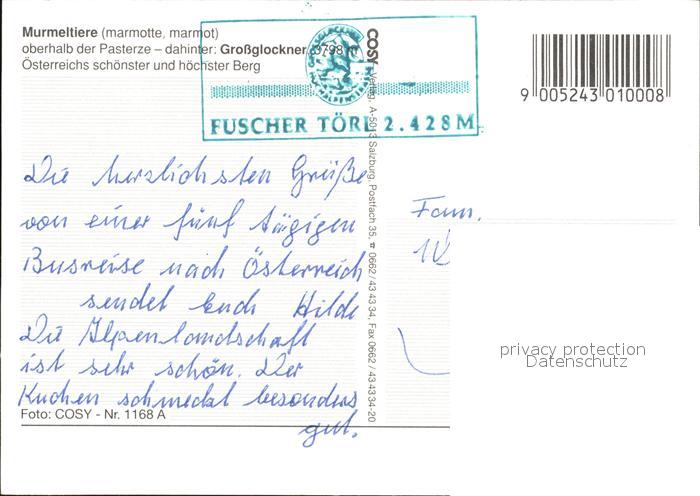 Murmeltiere (marmotte, marmot)
oberhalb der Pasterze – dahinter: Großglockner, 3798 m
Österreichs schönster und höchster Berg
FUSCHER TÖRL 2.428 M
COSY Verlag, A-5013 Salzburg, Postfach 35, ☎ 0662/43 43 34, Fax 0662/43 43 34-20
9 005243 010008
Die herzlichsten Grüße
von einer fünf tägigen
Busreise nach Österreich
sendet Euch Hilde
Die Alpenlandschaft
ist sehr schön. Der
Kuchen schmeckt besonders
gut.
Fam.
privacy protection
Datenschutz
Foto: COSY - Nr. 1168 A